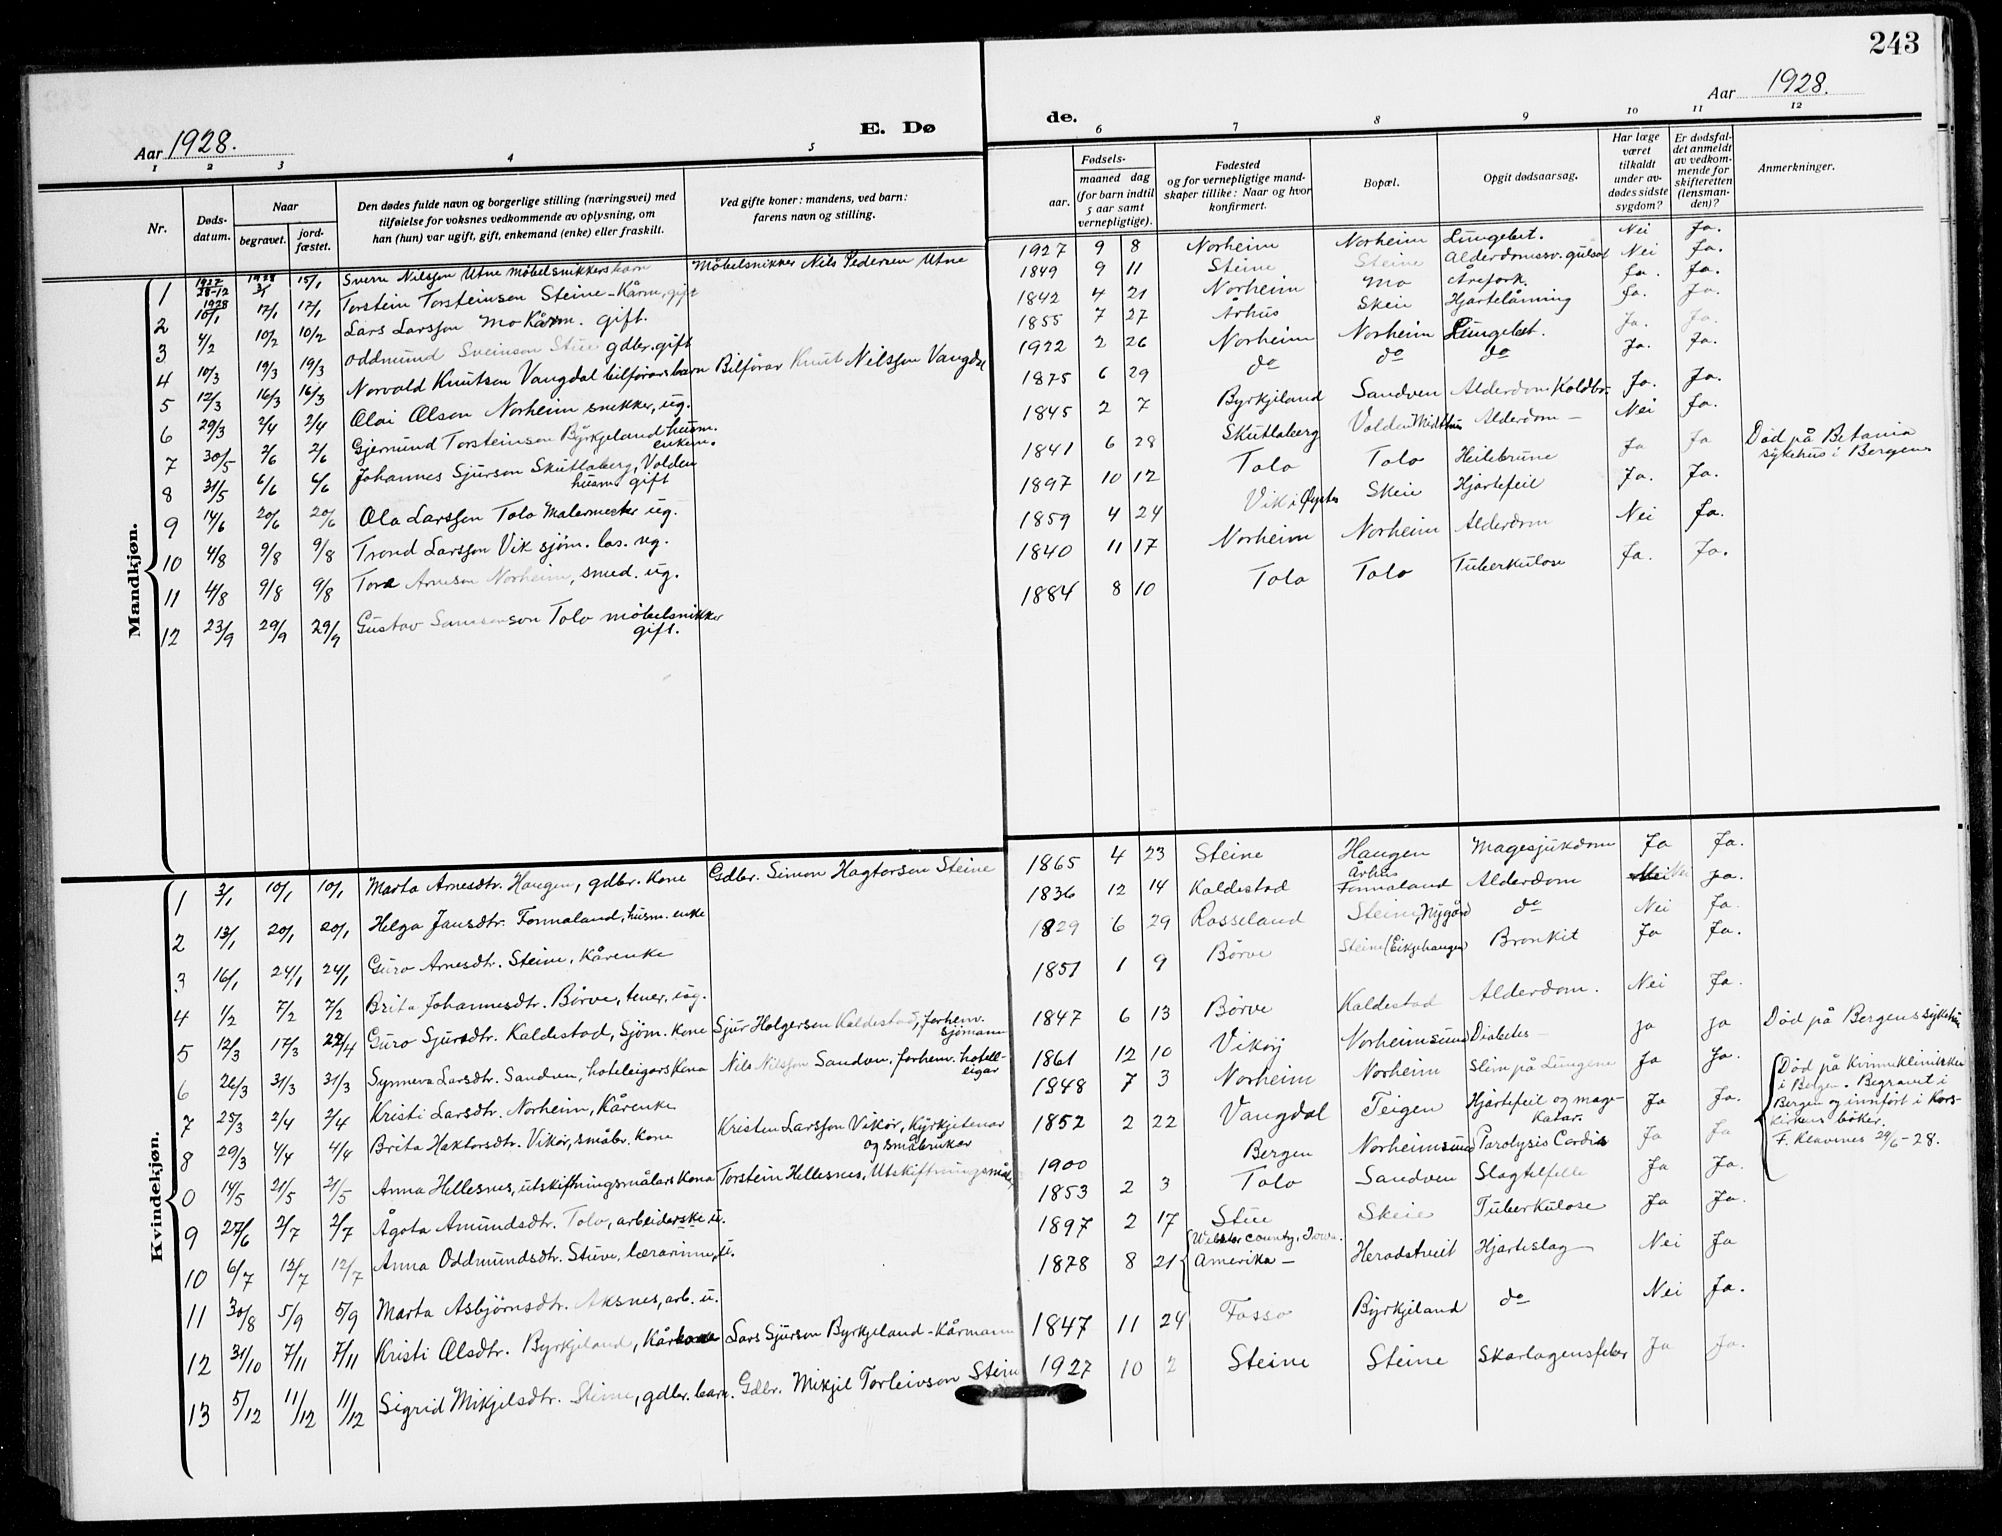 243
Aar 1928.
E. Døde.
Aar 1928.
1 2 3 4 5 6 7 8 9 10 11 12
Nr.
Døds-
datum.
Naar
begravet.
jord-
fæstet.
Den dødes fulde navn og borgerlige stilling (næringsvei) med
tilføielse for voksnes vedkommende av oplysning, om
han (hun) var ugift, gift, enkemand (enke) eller fraskilt.
Ved gifte koner: mandens, ved barn:
farens navn og stilling.
Fødsels-
aar.
maaned dag
(for barn indtil
5 aar samt
vernepligtige).
Fødested
og for vernepligtige mand-
skaper tillike: Naar og hvor
konfirmert.
Bopæl.
Opgit dødsaarsag.
Har læge
været
tilkaldt
under av-
dødes sidste
sygdom?
Er dødsfal-
det anmeldt
av vedkom-
mende for
skifteretten
(lensman-
den)?
Anmerkninger.
Mandkjøn.
1 1927 28-12 1928 3/1 15/1 Sverre Nilsson Utne møbelsnikkers barn Møbelsnikker Nils Pedersen Utne 1927 9 8 Norheim Norheim Lungebet. Nei Ja.
2 1928 10/1 17/1 17/1 Torstein Torsteinson Steine - Kårm, gift 1849 9 11 Steine Steine Alderdomssv. gulsot Nei Ja.
3 4/2 10/2 10/2 Lars Larsson Mo Kårm. gift. 1842 4 21 Norheim Mo Årefork. Ja. Ja.
4 10/3 19/3 19/3 Oddmund Sveinson Stue gdbr. gift 1855 7 27 Århus Skeie Hjartelåming Ja. Ja.
5 12/3 16/3 16/3 Norvald Knutsen Vangdal bilførars barn Bilførar Knut Nilsson Vangdal 1922 2 26 Norheim Norheim Lungebet. Ja. Ja.
6 29/3 2/4 2/4 Olai Olson Norheim snekker, ug. 1875 6 29 do do do Ja. Ja.
7 30/5 2/6 2/6 Gjermund Torsteinson Byrkjeland husm. enkem. 1845 2 7 Byrkjeland Sandven Alderdom Koldbr. Ja. Ja.
8 31/5 6/6 6/6 Johannes Sjurson Skutlaberg, Volden husm gift 1841 6 28 Skutlaberg Volden Midthun Alderdom – Nei Ja.
9 14/6 20/6 20/6 Ola Larsson Tolo Malermester ug. 1897 10 12 Tolo Tolo Heilebrune Ja Ja Død på Betania
sykehus i Bergen.
10 4/8 9/8 9/8 Trond Larsson Vik sjøm. los. ug. 1859 4 24 Vik i Øyste Skeie Hjartefeil Ja. Ja.
11 4/8 9/8 9/8 Tore Arneson Norheim, smed. ug. 1840 11 17 Norheim Norheim Alderdom Nei Ja.
12 23/9 29/9 29/9 Gustav Samsonson Tolo møbelsnikker gift. 1884 8 10 Tolo Tolo Tuberkulose Ja. Ja.
Kvindekjøn.
1 3/1 10/1 10/1 Marta Arnesdtr. Haugen, gdbr. kone Gdbr. Simon Hagtorson Steine 1865 4 23 Steine Haugen Magesjukdom Ja Ja.
2 13/1 20/1 20/1 Helga Jansdtr. Fonnaland, husm. enke 1836 12 14 Kaldestad Århus Fonnaland Alderdom Nei Ja.
3 16/1 24/1 24/1 Guro Arnesdtr. Steine, Kårenke 1829 6 29 Rosseland Steine, Nygård do Nei Ja.
4 1/2 7/2 7/2 Brita Johannesdtr. Børve, tener, ug. 1851 1 9 Børve Steine (Eikjehaugen) Bronkit Ja Ja.
5 12/3 17/3 22/4 Guro Sjursdtr. Kaldestad, Sjøm. kone Sjur Holgersen Kaldestad, forhenv. sjømann 1847 6 13 Børve Kaldestad Alderdom. Nei Ja.
6 26/3 31/3 31/3 Synneva Larsdtr. Sandven, hoteleigars kona Nils Nilsson Sandven, forhenv. hotell-eigar 1861 12 10 Vikøy Norheimsund Diabetes – Ja Ja Død på Bergens sykehus
7 25/3 2/4 2/4 Kristi Larsdtr. Norheim, Kårenke 1848 7 3 Norheim Norheim Slim på Lungene Ja Ja.
8 29/3 4/4 4/4 Brita Haktorsdtr. Vikør, småbr. kone Kristen Larsson Vikør, Kyrkjetenar og småbrukar 1852 2 22 Vangdal Teigen Hjartefeil og mage-Katar. Ja Ja.
0 14/5 21/5 21/5 Anna Hellesnes, utskiftningsmålars kona Torstein Hellesnes, Utskiftningsmål. 1900 Bergen Norheimsund Paralysis Cordis Ja Ja Død på Kvinneklinikken
i Bergen. Begravet i
Bergen og innført i Kors-
kirkens bøker.
F. Kleivenes 29/6-28.
9 27/6 2/7 2/7 Ågota Amundsdtr. Tolo, arbeiderske u. 1853 2 3 Tolo Sandven Slagtilfelle Ja Ja.
10 6/7 12/7 12/7 Anna Oddmundsdtr. Stuve, lærarinne, u. 1897 2 17 Stue Skeie Tuberkulose Ja Ja.
11 30/8 5/9 5/9 Marta Asbjørnsdtr. Aksnes, arb. u. 1878 8 21 Webster County, Iowa. Amerika – Herodstveit Hjarteslag – Nei Ja
12 31/10 7/11 7/11 Kristi Olsdtr. Byrkjeland, Kårkona Lars Sjurson Byrkjeland - Kårmann 1847 11 24 Fosso Byrkjeland do Nei Ja.
13 5/12 11/12 11/12 Sigrid Mikjelsdtr. Steine, gdbr. barn. Gdbr. Mikjel Torleivson Steine 1927 10 2 Steine Steine Skarlagensfeber Ja Ja.